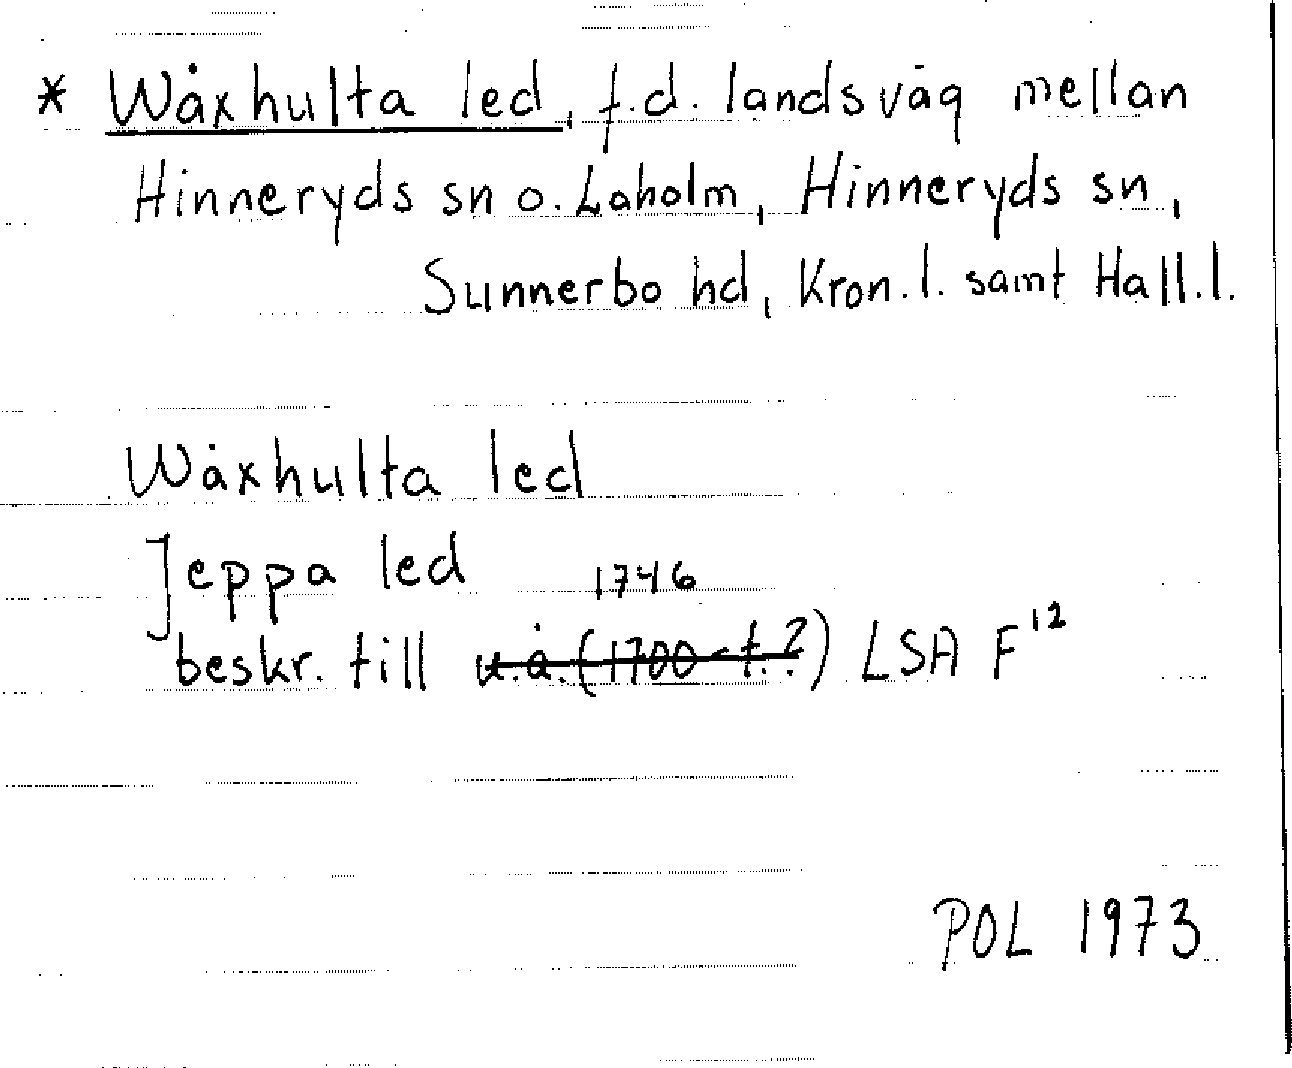 * Wåxhulta led, f.d. landsväg mellan
Hinneryds sn o. Laholm, Hinneryds sn,
Sunnerbo hd, Kron.l. samt Hall.l.
Wåxhulta led
Jeppa led
1746
beskr. till u.å. (1700-t.?) LSA F12
POL 1973